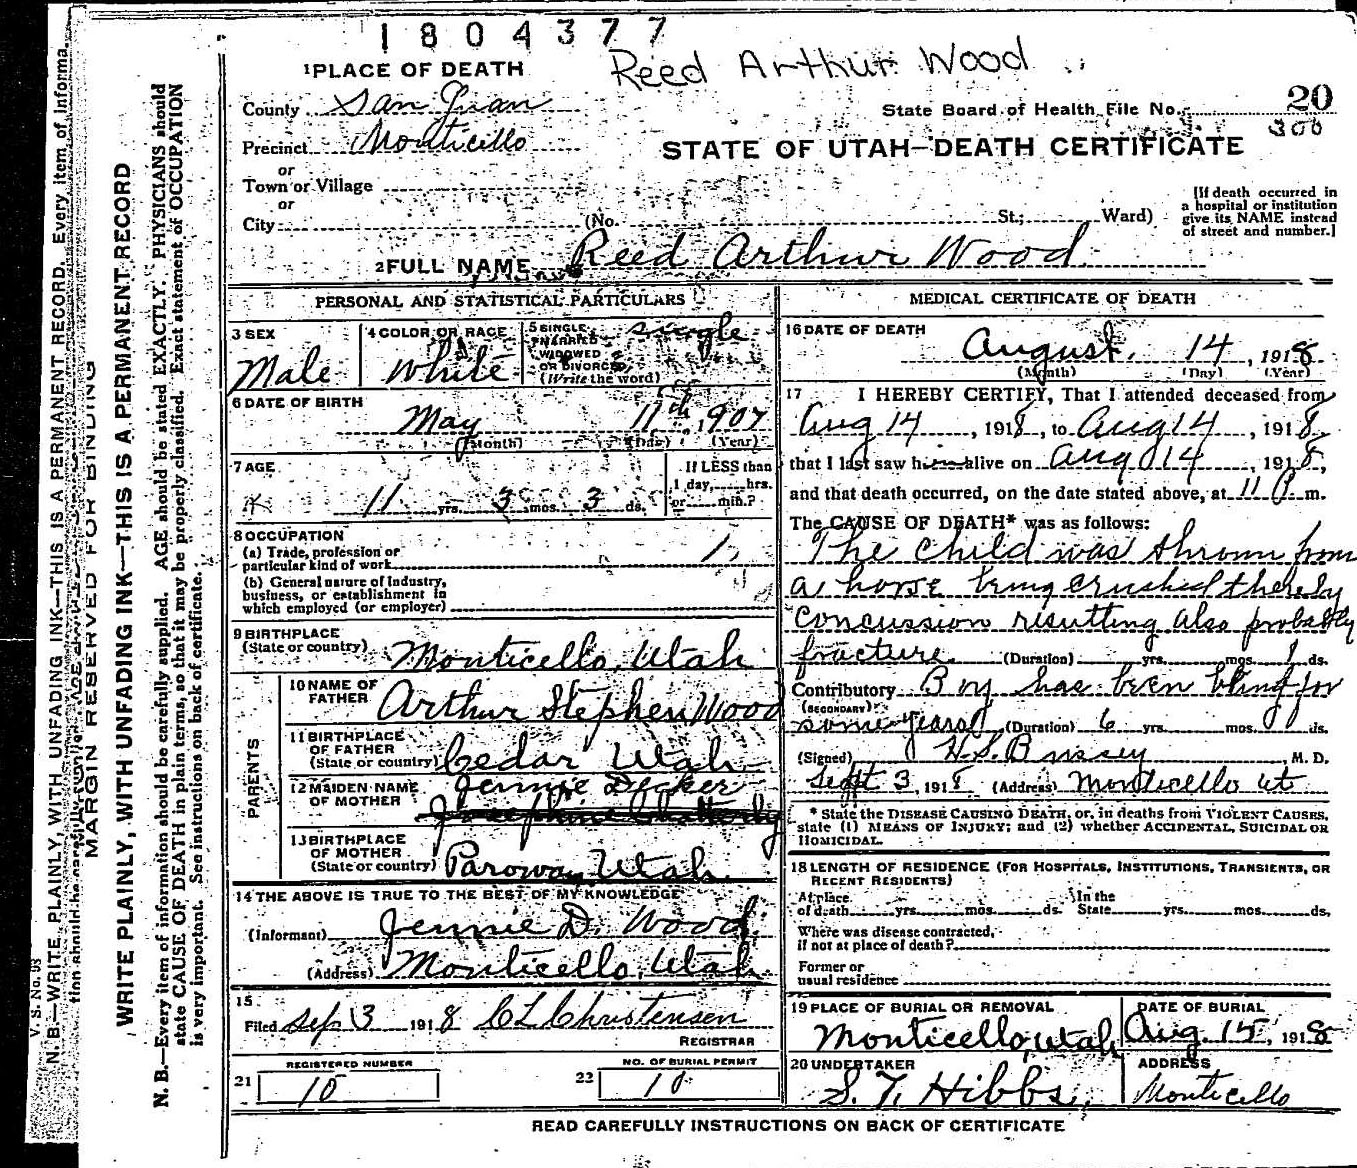 1804377
Reed Arthur Wood
1 PLACE OF DEATH
County San Juan
State Board of Health File No. 20
300
Precinct Monticello
STATE OF UTAH—DEATH CERTIFICATE
or
Town or Village
or
City (No. St.; Ward)
[If death occurred in a hospital or institution give its NAME instead of street and number.]
2 FULL NAME Reed Arthur Wood
PERSONAL AND STATISTICAL PARTICULARS
3 SEX
Male
4 COLOR OR RACE
White
5 SINGLE, MARRIED WIDOWED OR DIVORCED (Write the word)
single
6 DATE OF BIRTH
May 11th, 1907
(Month) (Day) (Year)
7 AGE
11 yrs. 3 mos. 3 ds.
If LESS than 1 day, hrs. or min.?
8 OCCUPATION
(a) Trade, profession or particular kind of work
(b) General nature of Industry, business, or establishment in which employed (or employer)
9 BIRTHPLACE
(State or country) Monticello, Utah
PARENTS
10 NAME OF FATHER Arthur Stephen Wood
11 BIRTHPLACE OF FATHER (State or country) Cedar Utah
12 MAIDEN NAME OF MOTHER Jennie Decker
13 BIRTHPLACE OF MOTHER (State or country) Parowan, Utah
14 THE ABOVE IS TRUE TO THE BEST OF MY KNOWLEDGE
(Informant) Jennie D. Wood.
(Address) Monticello, Utah
15
Filed Sep 3 1918 CL Christensen
REGISTRAR
REGISTERED NUMBER
21 10
NO. OF BURIAL PERMIT
22 10
MEDICAL CERTIFICATE OF DEATH
16 DATE OF DEATH
August 14, 1918
(Month) (Day) (Year)
17 I HEREBY CERTIFY, That I attended deceased from
Aug 14, 1918, to Aug 14, 1918,
that I last saw h alive on Aug 14, 1918,
and that death occurred, on the date stated above, at 11 P m.
The CAUSE OF DEATH* was as follows:
The child was thrown from
a horse being crushed thereby
concussion resulting also probably
fracture (Duration) yrs. mos. 1 ds.
Contributory Boy has been blind for
(SECONDARY)
some years (Duration) 6 yrs. mos. ds.
(Signed) M. D.
Sept 3, 1918 (Address) Monticello Ut
* State the DISEASE CAUSING DEATH, or, in deaths from VIOLENT CAUSES, state (1) MEANS OF INJURY; and (2) whether ACCIDENTAL, SUICIDAL OR HOMICIDAL.
18 LENGTH OF RESIDENCE (FOR HOSPITALS, INSTITUTIONS, TRANSIENTS, OR RECENT RESIDENTS)
At place of death yrs. mos. ds. In the State yrs. mos. ds.
Where was disease contracted, if not at place of death?
Former or usual residence
19 PLACE OF BURIAL OR REMOVAL
Monticello, Utah
DATE OF BURIAL
Aug. 15, 1918
20 UNDERTAKER
S. T. Hibbs.
ADDRESS
Monticello
READ CAREFULLY INSTRUCTIONS ON BACK OF CERTIFICATE
V. S. No. 98
N. B.—WRITE PLAINLY, WITH UNFADING INK—THIS IS A PERMANENT RECORD. Every item of informa-
MARGIN RESERVED FOR BINDING
WRITE PLAINLY, WITH UNFADING INK—THIS IS A PERMANENT RECORD
N. B.—Every item of information should be carefully supplied. AGE should be stated EXACTLY. PHYSICIANS should
state CAUSE OF DEATH in plain terms, so that it may be properly classified. Exact statement of OCCUPATION
is very important. See instructions on back of certificate.